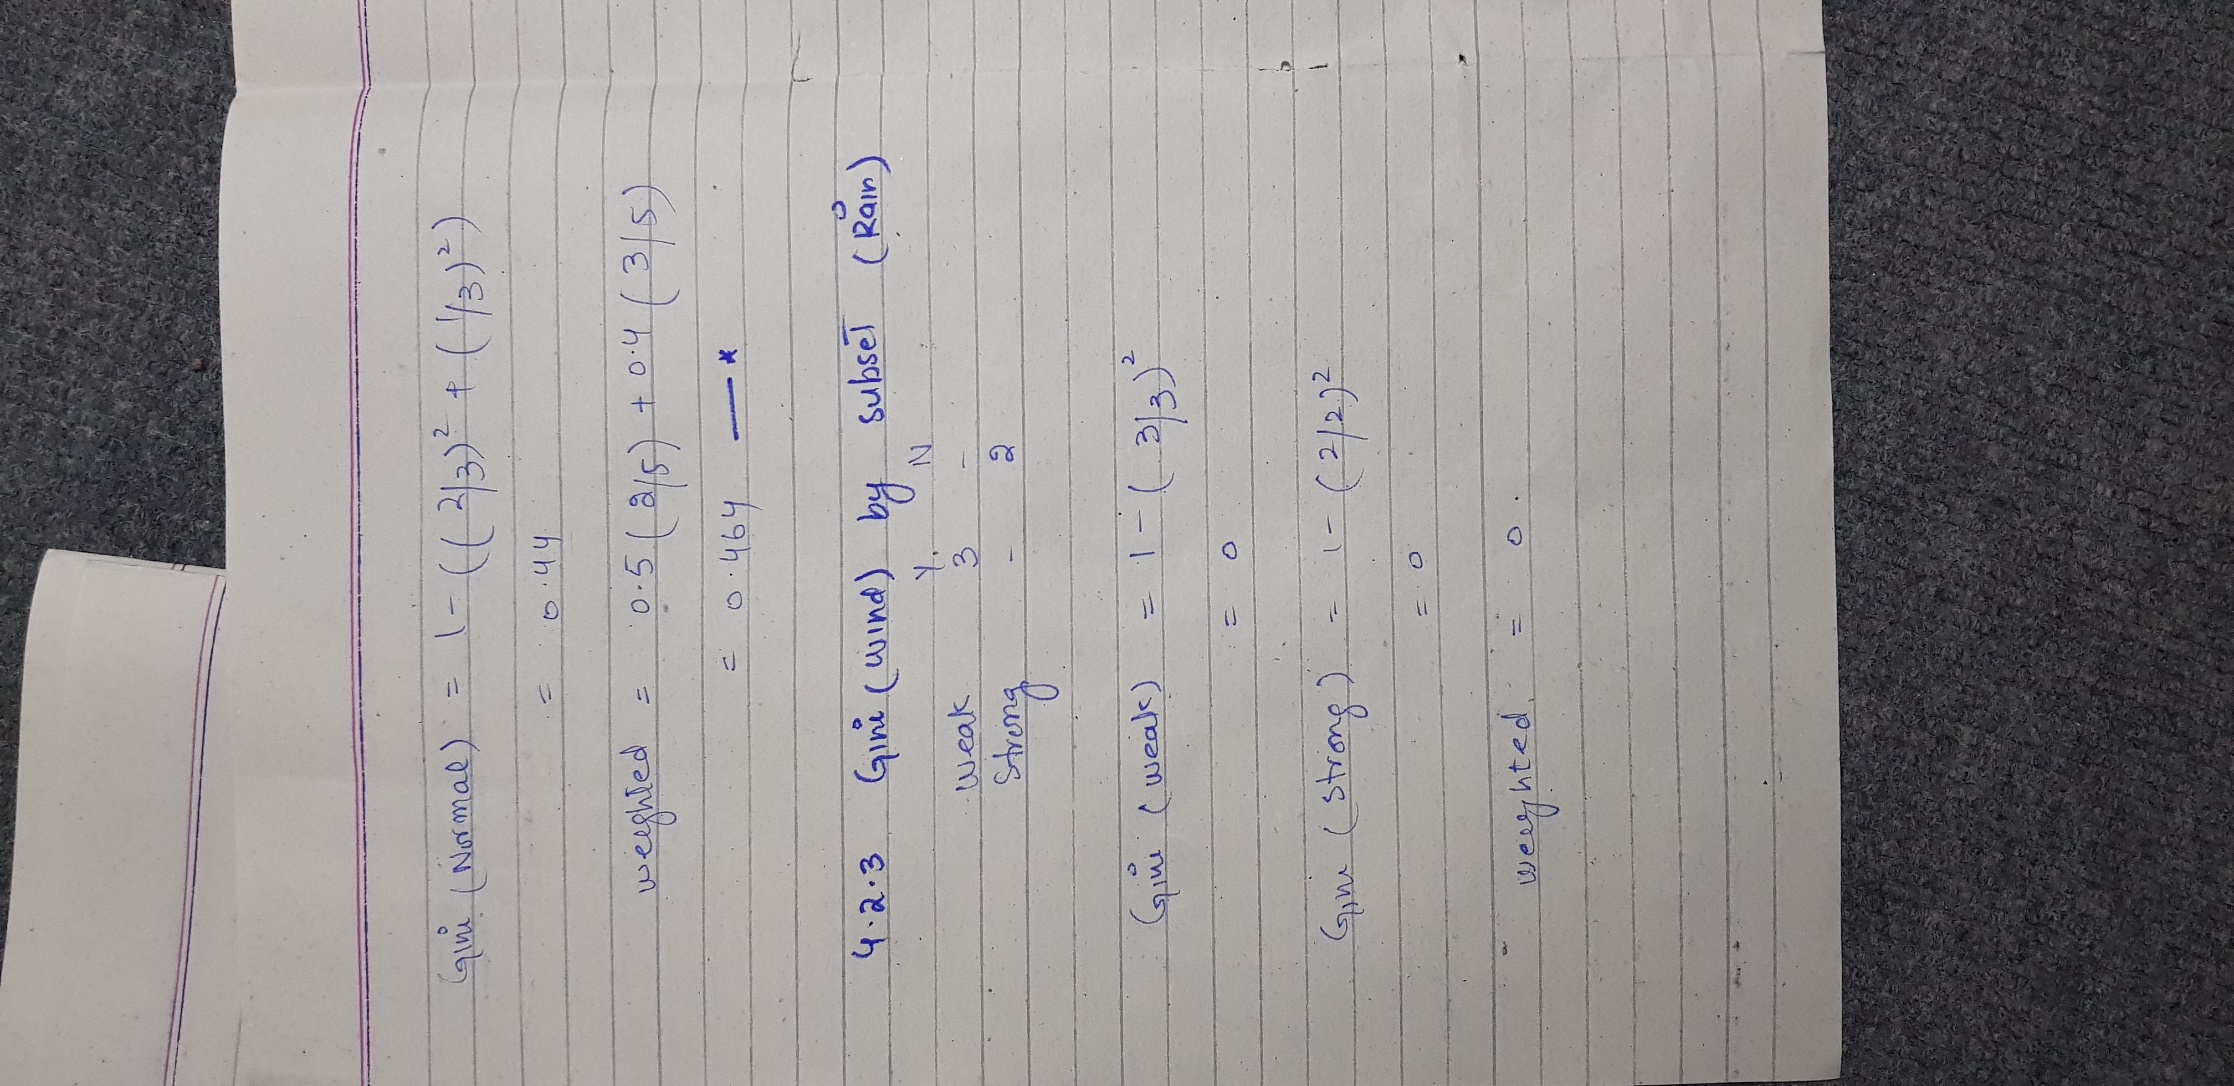 Gini (Normal) = 1 - ((2/3)² + (1/3)²)
= 0.44
weighted = 0.5 (2/5) + 0.4 (3/5)
= 0.464 —*
4.2.3 Gini (wind) by subset (Rain)
Y N
Weak 3 -
Strong - 2
Gini (weak) = 1 - (3/3)²
= 0
Gini (strong) = 1 - (2/2)²
= 0
weighted = 0.